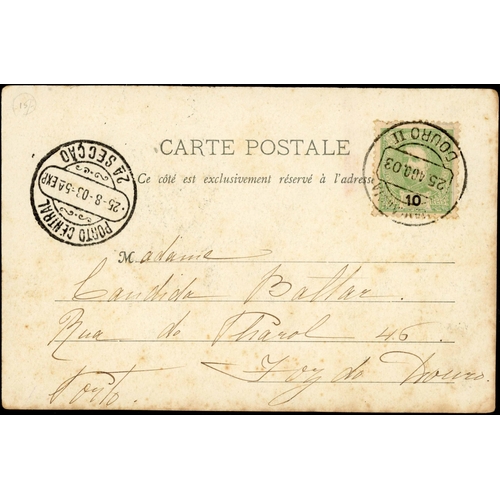 CARTE POSTALE
Ce côté est exclusivement réservé à l'adresse
DOURO II
25 AGO 03
10
PORTO CENTRAL
25-8-03-5A EXP
2A SECÇÃO
Madame
Candida Baltar.
Rua do Pharol 46.
Foz do Douro.
Porto.